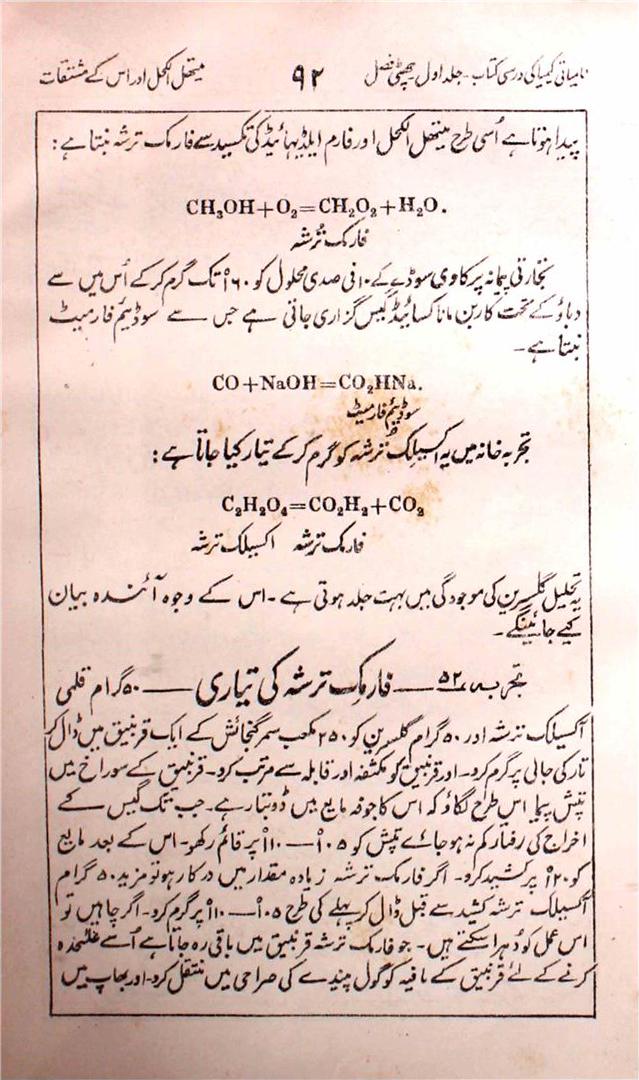 نامیاتی کیمیا کی درسی کتاب - جلد اول چھٹی فصل ۹۲ میتھل الکحل اور اس کے مشتقات
پیدا ہوتا ہے اُسی طرح میتھل الکحل اور فارم ایلڈیہائیڈ کی تکسید سے فارمک ترشہ بنتا ہے :
CH₃OH+O₂=CH₂O₂+H₂O.
فارمک تُرشہ
تجارتی پیمانہ پر کاوی سوڈے کے ۱۰ فی صدی محلول کو ۱۶۰ْ تک گرم کرکے اُس میں سے
دباؤ کے تحت کاربن مانا کسائیڈ گیس گزاری جاتی ہے جس سے سوڈیئم فارمیٹ
بنتا ہے۔
CO+NaOH=CO₂HNa.
سوڈیئم فارمیٹ
تجربہ خانہ میں یہ آکسیلک تُرشہ کو گرم کرکے تیار کیا جاتا ہے :
C₂H₂O₄=CO₂H₂+CO₂
فارمک ترشہ آکسیلک ترشہ
یہ تحلیل گلسرین کی موجودگی میں بہت جلد ہوتی ہے ۔ اس کے وجوہ آئندہ بیان
کیے جائینگے ۔
تجربہ ۵۲ — فارمک ترشہ کی تیاری — ۵۰ گرام قلمی
آکسیلک ترشہ اور ۵۰ گرام گلسرین کو ۲۵۰ مکعب سمر گنجائش کے ایک قرنبیق میں ڈال کر
تار کی جالی پر گرم کرو۔ اور قرنبیق کو مکثفہ اور قابلہ سے مرتب کرو۔ قرنبیق کے سوراخ میں
تپش پیما اس طرح لگاؤ کہ اس کا جوفہ مایع میں ڈوبتا رہے ۔ جب تک گیس کے
اخراج کی رفتار کم نہ ہو جائے تپش کو ۱۰۵ْ — ۱۱۰ْ پر قائم رکھو۔ اس کے بعد مایع
کو ۱۲۰ْ پر کشید کرو۔ اگر فارمک ترشہ زیادہ مقدار میں درکار ہو تو مزید ۵۰ گرام
آکسیلک ترشہ کشید سے قبل ڈال کر پہلے کی طرح ۱۰۵ْ — ۱۱۰ْ پر گرم کرو۔ اگر چاہیں تو
اس عمل کو دُہرا سکتے ہیں ۔ جو فارمک ترشہ قرنبیق میں باقی رہ جاتا ہے اُسے علیٰحدہ
کرنے کے لئے قرنبیق کے مافیہ کو گول پیندے کی صراحی میں منتقل کرو۔ اور بھاپ میں